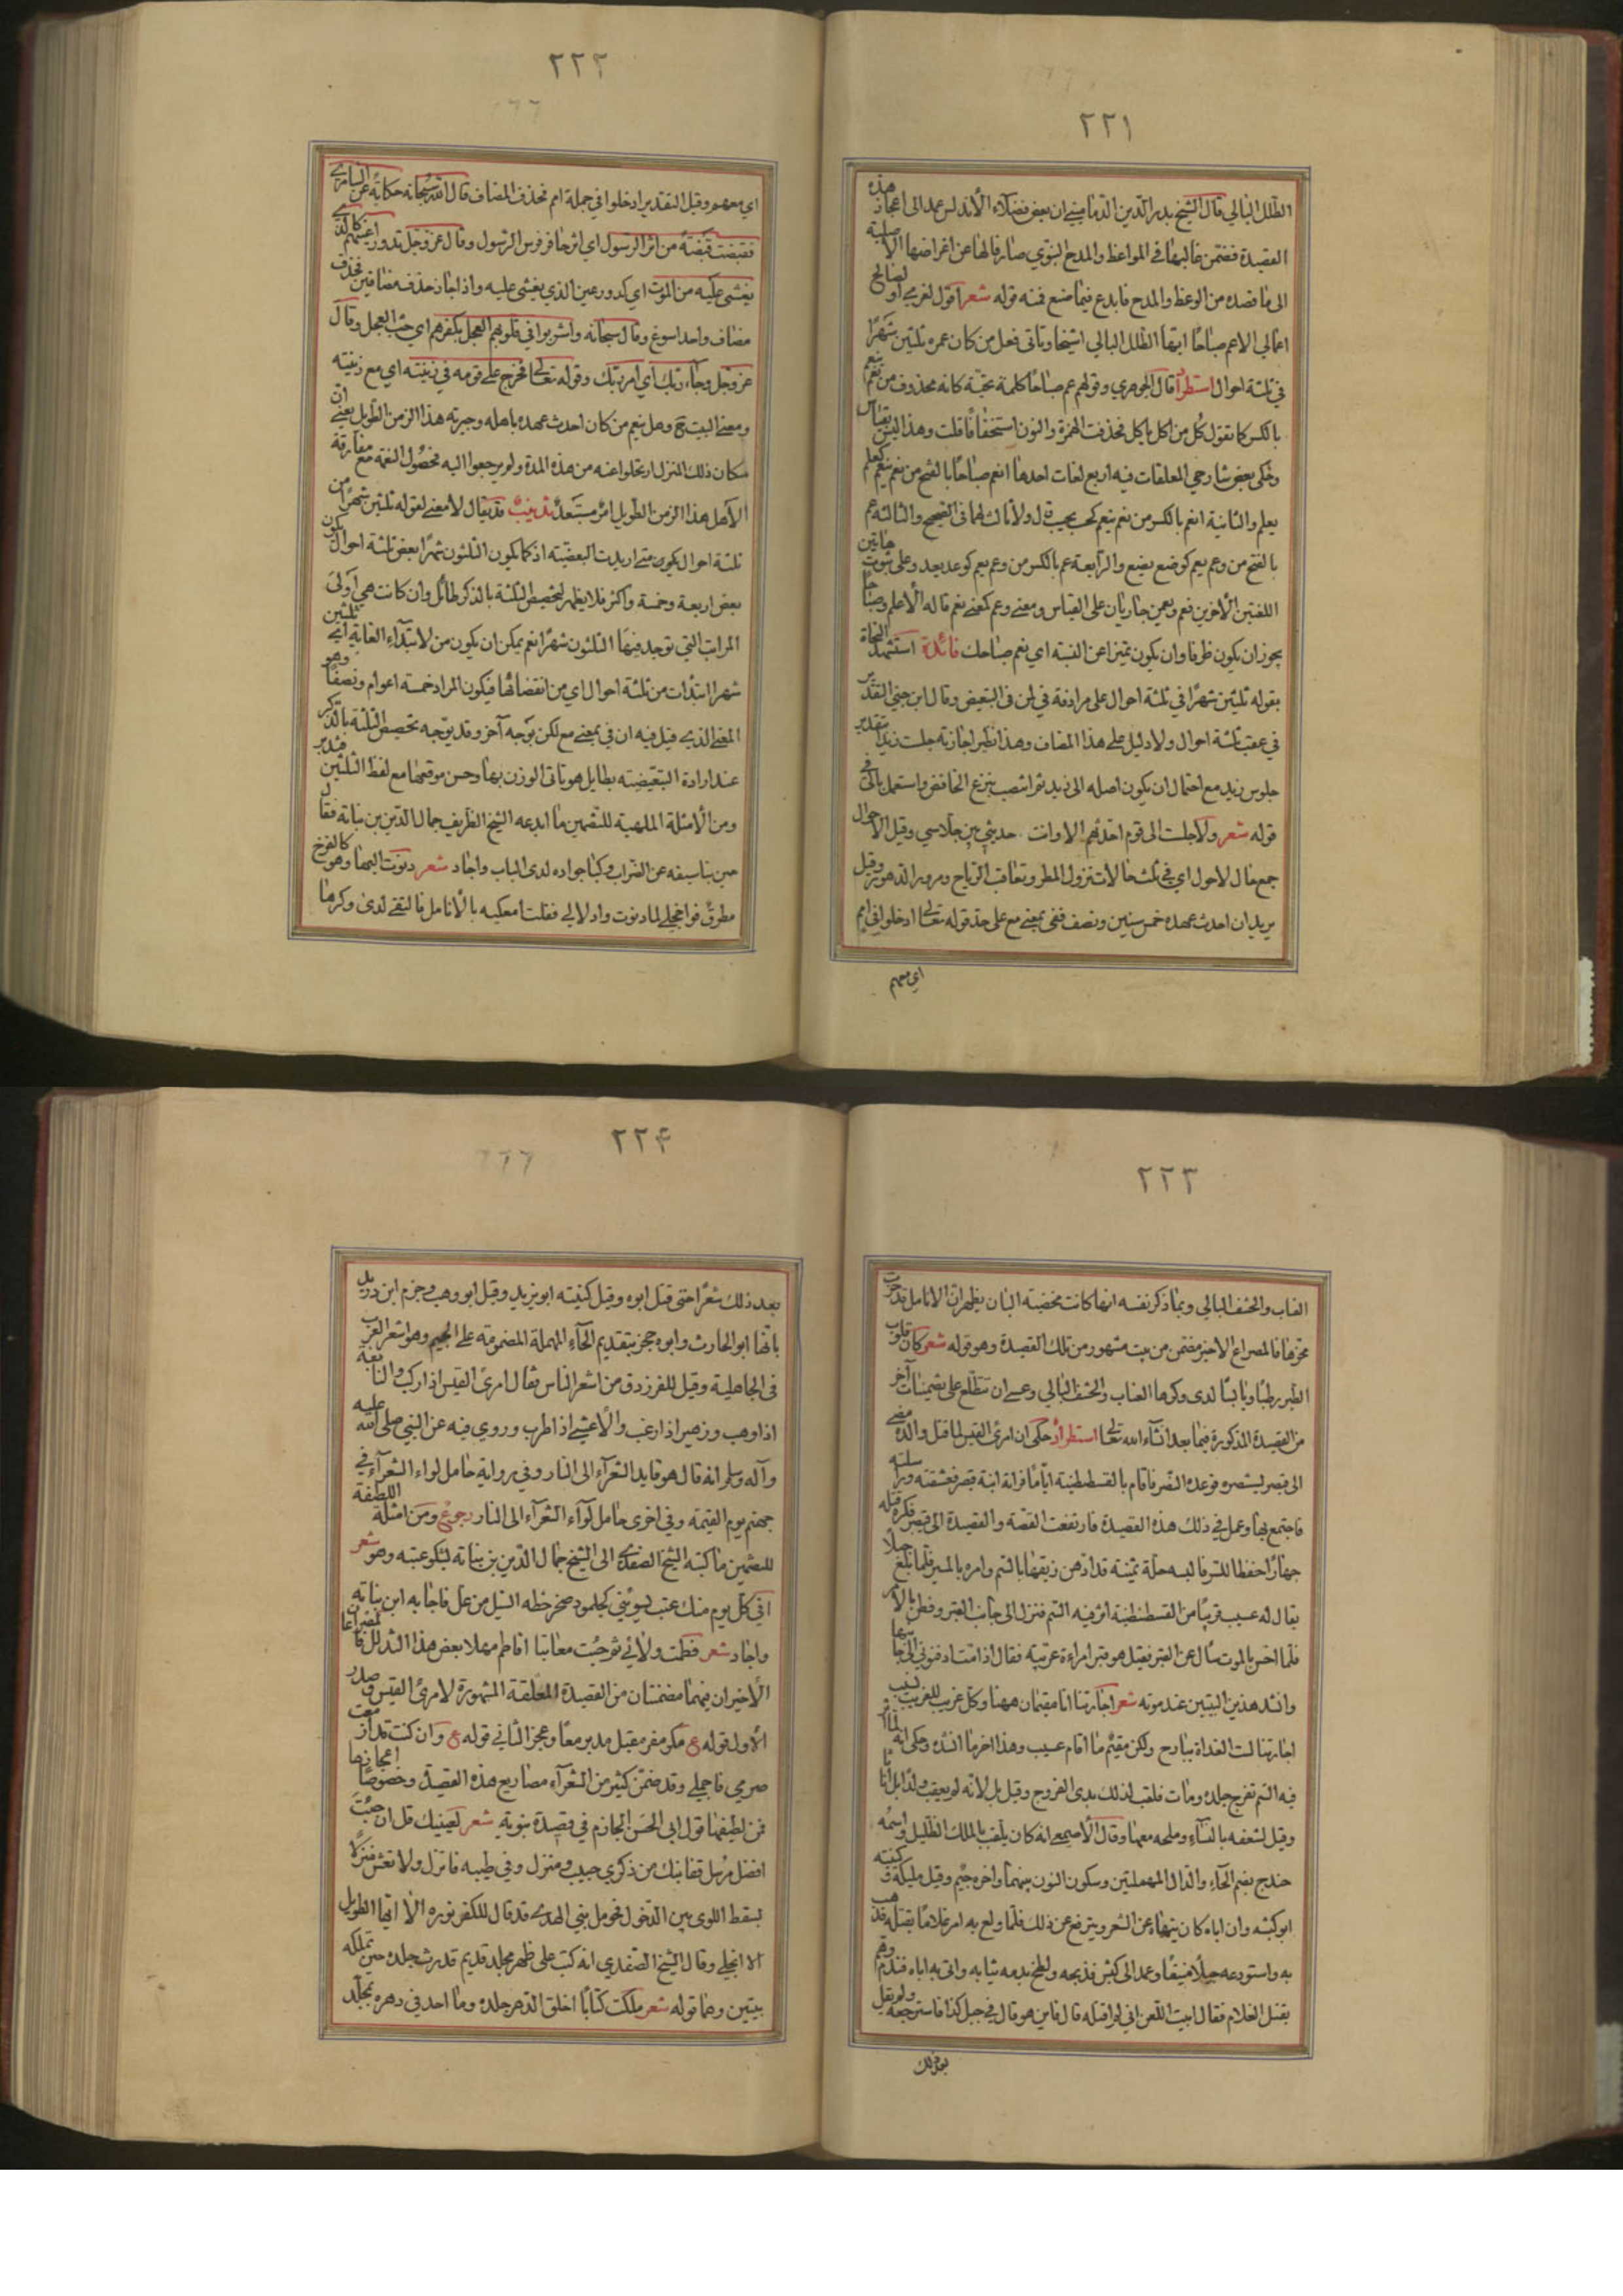 ٢٢١
الطلل البالي قال الشيخ بدر الدين الدماميني ان بعض فضلاء الأندلس عمد الى اعجاز هذه
القصيدة فضمن غالبها في المواعظ والمدح النبوي صارفا لها عن اغراضها الأصلية
الى ما قصده من الوعظ والمدح فابدع فيما صنع فمنه قوله شعر اقول لعزمي او لصالح
اعمالي الا عم صباحًا ايها الطلل البالي اشيخا وتأتي فعل من كان عمره ثلثين شهرًا
في ثلثة احوال استطرا قال الجوهري وقولهم عم صباحًا كلمة تحية كانه محذوف من نعم ينعم
بالكسر كما تقول كل من اكل ياكل فحذفت الهمزة والنون استخفافًا قلت وهذا ليس بقياس
وحكى بعض شارحي المعلقات فيه اربع لغات احدها انعم صباحًا بالفتح من نعم ينعم كعلم
يعلم والثانية انعم بالكسر من نعم ينعم كحسب يحسب ولا ثالث لهما في الصحيح والثالثة عم
بالفتح من وعم يعم كوضع يضع والرابعة عم بالكسر من وعم يعم كوعد يعد وعلى ثبوت هاتين
اللغتين الاخرتين فعم وعمن جاريان على القياس ومعنى وعم كمعنى نعم قاله الأعلم وصباحًا
يجوز ان يكون ظرفا وان يكون تميزا عن النسبة اي نعم صباحك فائدة استشهد النحاة
بقوله ثلثين شهرًا في ثلثة احوال على مرادفة في لمن في التبعيض وقال ابن جني التقدير
في عقب ثلثة احوال ولا دليل على هذا المضاف وهذا نظير اجازته جلست زيدًا بتقدير
جلوس زيد مع احتمال ان يكون اصله الى زيد ثم انتصب بنزع الخافض واستعمل بالى في
قوله شعر ولا جلست الى قوم احدثهم الا وانت حديثي بين جلاسي وقيل الاحوال
جمع حال لا حول اي في ثلث حالات نزول المطر وتعاقب الرياح ومرور الدهور وقيل
يريد ان احدث عهده خمس سنين ونصف ففي بمعنى مع على حد قوله تعالى ادخلوا في امم
اي معهم
٢٢٢
اي معهم وقيل التقدير ادخلوا في جملة امم فحذف المضاف قال الله سبحانه حكاية عن السامري
فقبضت قبضة من اثر الرسول اي اثر حافر فرس الرسول وقال عز وجل تدور اعينهم كالذي
يغشى عليه من الموت اي كدور عين الذي يغشى عليه واذا جاز حذف مضافين فحذف
مضاف واحد اسوغ وقال سبحانه واشربوا في قلوبهم العجل بكفرهم اي حب العجل وقال
عز وجل وجاء ربك اي امر ربك وقوله تعالى فخرج على قومه في زينته اي مع زينته
ومعنى البيت ح وهل ينعم من كان احدث عهده باهله وجيرته هذا الزمن الطويل يعني ان
سكان ذلك المنزل ارتحلوا عنه من هذه المدة ولم يرجعوا اليه فحصول النعمة مع مفارقة
الأهل هذا الزمن الطويل امر مستبعد تذنيب قد يقال لا معنى لقوله ثلثين شهرًا من
ثلثة احوال يكون متى اريدت البعضية اذ كما يكون الثلثون شهرًا بعض ثلثة احوال يكون
بعض اربعة وخمسة واكثر فلا يظهر لتخصيص الثلثة بالذكر طائل وان كانت هي اولى
المراتب التي توجد فيها الثلثون شهرًا نعم يمكن ان يكون من لابتداء الغاية اي ثلثين
شهرا ابتدأت من ثلثة احوال اي من انقضائها فيكون المراد خمسة اعوام ونصفًا وهو
المعنى الذي قيل فيه ان في بمعنى مع لكن بوجه آخر وقد يوجه تخصيص الثلثة بالذكر
عند ارادة التبعيضية بطايل هو تاتي الوزن بها وحسن موقعها مع لفظ الثلثين فتدبر
ومن الأمثلة الملهية للتضمين ما ابدعه الشيخ الظريف جمال الدين بن نباتة فقال
حين نبا سيفه عن القراب وكبا جواده لدى الباب واجاد شعر دنوت اليها وهو كالفرخ
مطرق فواخجلي لما دنوت وادلالي فقلت امعكيه بالأنامل فالتقى لدى وكرها
٢٢٣
العناب والحشف البالي وبما ذكر نفسه انها كانت مخضبة البنان يظهر ان الانامل قد جرت
مجرها فالمصراع الاخير مضمن من بيت مشهور من تلك القصيدة وهو قوله شعر كان قلوب
الطير رطبًا ويابسًا لدى وكرها العناب والحشف البالي وعسى ان تطلع على تضمينات آخر
من القصيدة المذكورة فيما بعد انشاء الله تعالى استطراد حكى ان امرئ القيس لما قتل والده مضى
الى قيصر ليستنصره فوعده النصر فاقام بالقسطنطنية ايامًا فرأته ابنة قيصر فعشقته وراسلته
فاجتمع بها وعمل في ذلك هذه القصيدة فارتفعت القصة والقصيدة الى قيصر فكره قتله
جهارًا حفظا للسر فالبسه حلة ثمينة قد ادهن زيقها بالسم وامره بالمسير فلما بلغ جبلاً
يقال له عسيب قريبًا من القسطنطنية اثر فيه السم فنزل الى جانب القبر وفطن بالأمر
فلما احس بالموت سأل عن القبر فقيل هو قبر امراءة عربية فقال اذا مت ادفنوني الى جانبها
وانشد هذين البيتين عند موته شعر اجارتنا انا مقيمان ههنا وكل غريب للغريب نسيب
اجارتنا لست الغداة ببارح ولكن مقيم ما اقام عسيب وهذا اخر ما انشده وحكى انه لما اثر
فيه السم تفرح جلده ومات فلقب لذلك بذي القروح وقيل بل لانه لم يعقب ولدًا بل اناثا
وقيل لشغفه بالنساء وملحه معها وقال الأصمعي انه كان يلقب بالملك الظليل واسمه
حندج بضم الحاء والدال المهملتين وسكون النون بينهما واخره جيم وقيل مليكة وكنيته
ابو كبشه وان اباه كان ينهاه عن الشعر ويترفع عن ذلك فلما ولع به امر غلامًا بقتله فذهب
به واستودعه جبلاً منيفًا وعمد الى كبش فذبحه ولطخ بدمه ثيابه واتى به اباه فندم وهم
بقتل الغلام فقال ابيت اللعن اني لم اقتله قال فاين هو قال في جبل كذا فاسترجعه ولم يقل
بعد ذلك
٢٢۴
بعد ذلك شعرًا حتى قتل ابوه وقيل كنيته ابو يزيد وقيل ابو وهب وجزم ابن دريد
بانها ابو الحارث وابوه حجر بتقديم الحاء المهملة المضمومة على الجيم وهو اشعر العرب
في الجاهلية وقيل للفرزدق من اشعر الناس فقال امرئ القيس اذا ركب والنابغة
اذا وهب وزهير اذا رغب والأعشى اذا طرب وروي فيه عن النبي صلى الله عليه
وآله وسلم انه قال هو قايد الشعراء الى النار وفي رواية حامل لواء الشعراء في
جهنم يوم القيمة وفي اخرى حامل لوآء الشعرآء الى النار رجوع ومن امثلة اللطيفة
للتضمين ما كتبه الشيخ الصفدي الى الشيخ جمال الدين بن نباته ليشكو عتبه وهو شعر
افي كل يوم منك عتب يسوئني كجلمود صخر حطه السيل من عل فاجابه ابن نباته
واجاد شعر فطمت ولائي ثم جئت معاتبا افاطم مهلا بعض هذا التدلل فالمصراعان
الأخيران فيهما مضمنتان من القصيدة المعلقة المشهورة لامرئ القيس وصدر
الأول قوله ع مكر مفر مقبل مدبر معًا وعجز الثاني قوله ع وان كنت قد ازمعت
صرمي فاجملي وقد ضمن كثير من الشعرآء مصاريع هذه القصيدة وخصوصًا اعجازها
فمن لطيفها قول ابي الحسن الحازم في قصيدة نبوية شعر لعينيك قل ان جئت
افضل مرسل قفا نبك من ذكرى حبيب ومنزل وفي طيبه فانزل ولا تغش منزلاً
بسقط اللوى بين الدخول فحومل نبي الهدى قد قال للكفر نوره الا ايها الطويل
الا انجلي وقال الشيخ الصفدي انه كتب على ظهر مجلد قديم قد رث جلده حين تملكه
بيتين وهما قوله شعر ملكت كتابًا اخلق الدهر جلده وما احد في دهره بمجلد